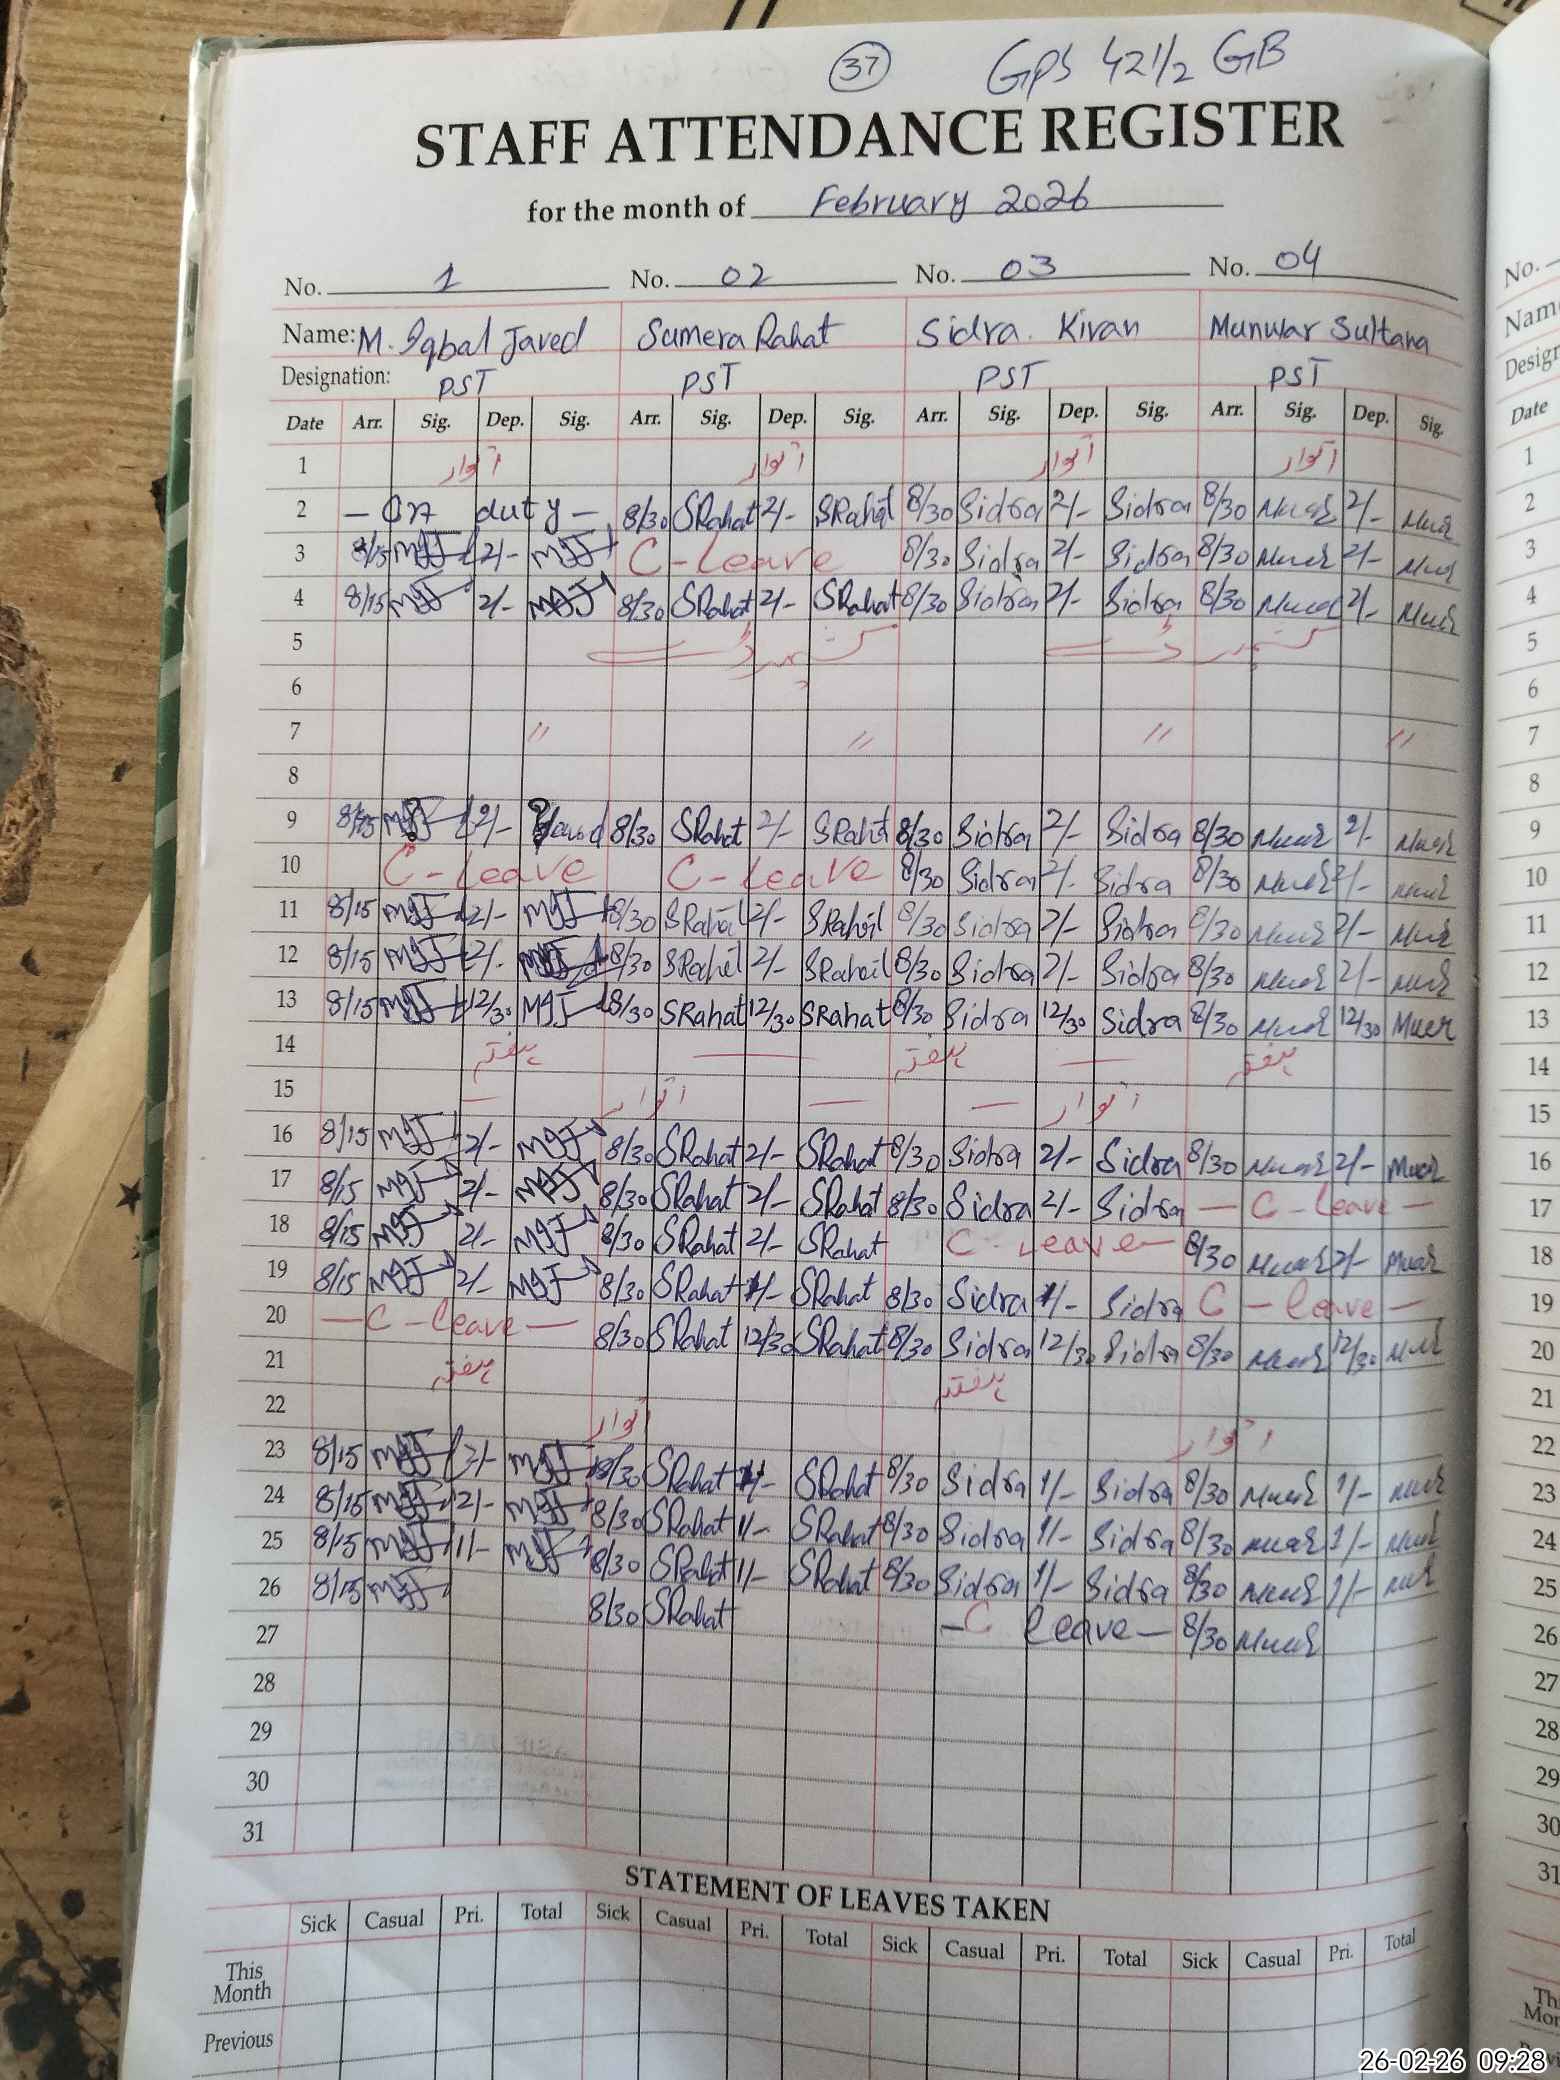 37 GPS 42 1/2 GB
STAFF ATTENDANCE REGISTER
for the month of February 2026
No. 1 No. 02 No. 03 No. 04
Name: M. Iqbal Javed Sumera Rahat Sidra. Kiran Munwar Sultana
Designation: PST PST PST PST
Date Arr. Sig. Dep. Sig. Arr. Sig. Dep. Sig. Arr. Sig. Dep. Sig. Arr. Sig. Dep. Sig.
1 اتوار اتوار اتوار اتوار
2 — On duty — 8/30 SRahat 2/- SRahat 8/30 Sidra 2/- Sidra 8/30 2/-
3 8/15 MIJ 2/- MIJ C-Leave 8/30 Sidra 2/- Sidra 8/30 2/-
4 8/15 MIJ 2/- MIJ 8/30 SRahat 2/- SRahat 8/30 Sidra 2/- Sidra 8/30 2/-
5 کشمیر ڈے کشمیر ڈے
6
7 〃 〃 〃 〃
8
9 8/15 MIJ 2/- Javed 8/30 SRahat 2/- SRahat 8/30 Sidra 2/- Sidra 8/30 2/-
10 C-Leave C-Leave 8/30 Sidra 2/- Sidra 8/30 2/-
11 8/15 MIJ 2/- MIJ 8/30 SRahat 2/- SRahat 8/30 Sidra 2/- Sidra 8/30 2/-
12 8/15 MIJ 2/- MIJ 8/30 SRahat 2/- SRahat 8/30 Sidra 2/- Sidra 8/30 2/-
13 8/15 MIJ 12/30 MIJ 8/30 SRahat 12/30 SRahat 8/30 Sidra 12/30 Sidra 8/30 12/30
14 ہفتہ — ہفتہ — ہفتہ
15 — اتوار — — اتوار
16 8/15 MIJ 2/- MIJ 8/30 SRahat 2/- SRahat 8/30 Sidra 2/- Sidra 8/30 2/-
17 8/15 MIJ 2/- MIJ 8/30 SRahat 2/- SRahat 8/30 Sidra 2/- Sidra — C - Leave —
18 8/15 MIJ 2/- MIJ 8/30 SRahat 2/- SRahat C - Leave — 8/30 2/-
19 8/15 MIJ 2/- MIJ 8/30 SRahat 1/- SRahat 8/30 Sidra 1/- Sidra C - Leave —
20 — C - Leave — 8/30 SRahat 12/30 SRahat 8/30 Sidra 12/30 Sidra 8/30 12/30
21 ہفتہ ہفتہ
22 اتوار اتوار
23 8/15 MIJ 2/- MIJ 8/30 SRahat 1/- SRahat 8/30 Sidra 1/- Sidra 8/30 1/-
24 8/15 MIJ 2/- MIJ 8/30 SRahat 1/- SRahat 8/30 Sidra 1/- Sidra 8/30 1/-
25 8/15 MIJ 1/- MIJ 8/30 SRahat 1/- SRahat 8/30 Sidra 1/- Sidra 8/30 1/-
26 8/15 MIJ 8/30 SRahat — C Leave — 8/30
27
28
29
30
31
STATEMENT OF LEAVES TAKEN
Sick Casual Pri. Total Sick Casual Pri. Total Sick Casual Pri. Total Sick Casual Pri. Total
This Month
Previous
No.
Name
Design
Date
1
2
3
4
5
6
7
8
9
10
11
12
13
14
15
16
17
18
19
20
21
22
23
24
25
26
27
28
29
30
31
26-02-26 09:28